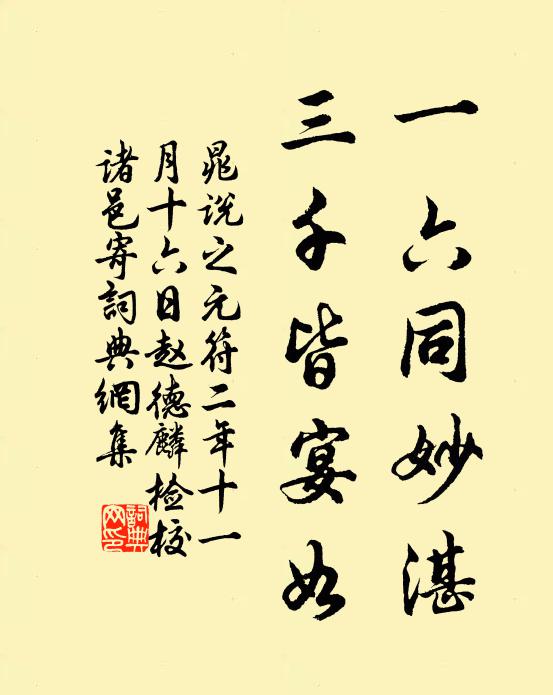 一六同妙湛
三千皆宴如
晁说之元符二年十一
月十六日赵德麟检校
诸邑寄詞典網集
詞典网印